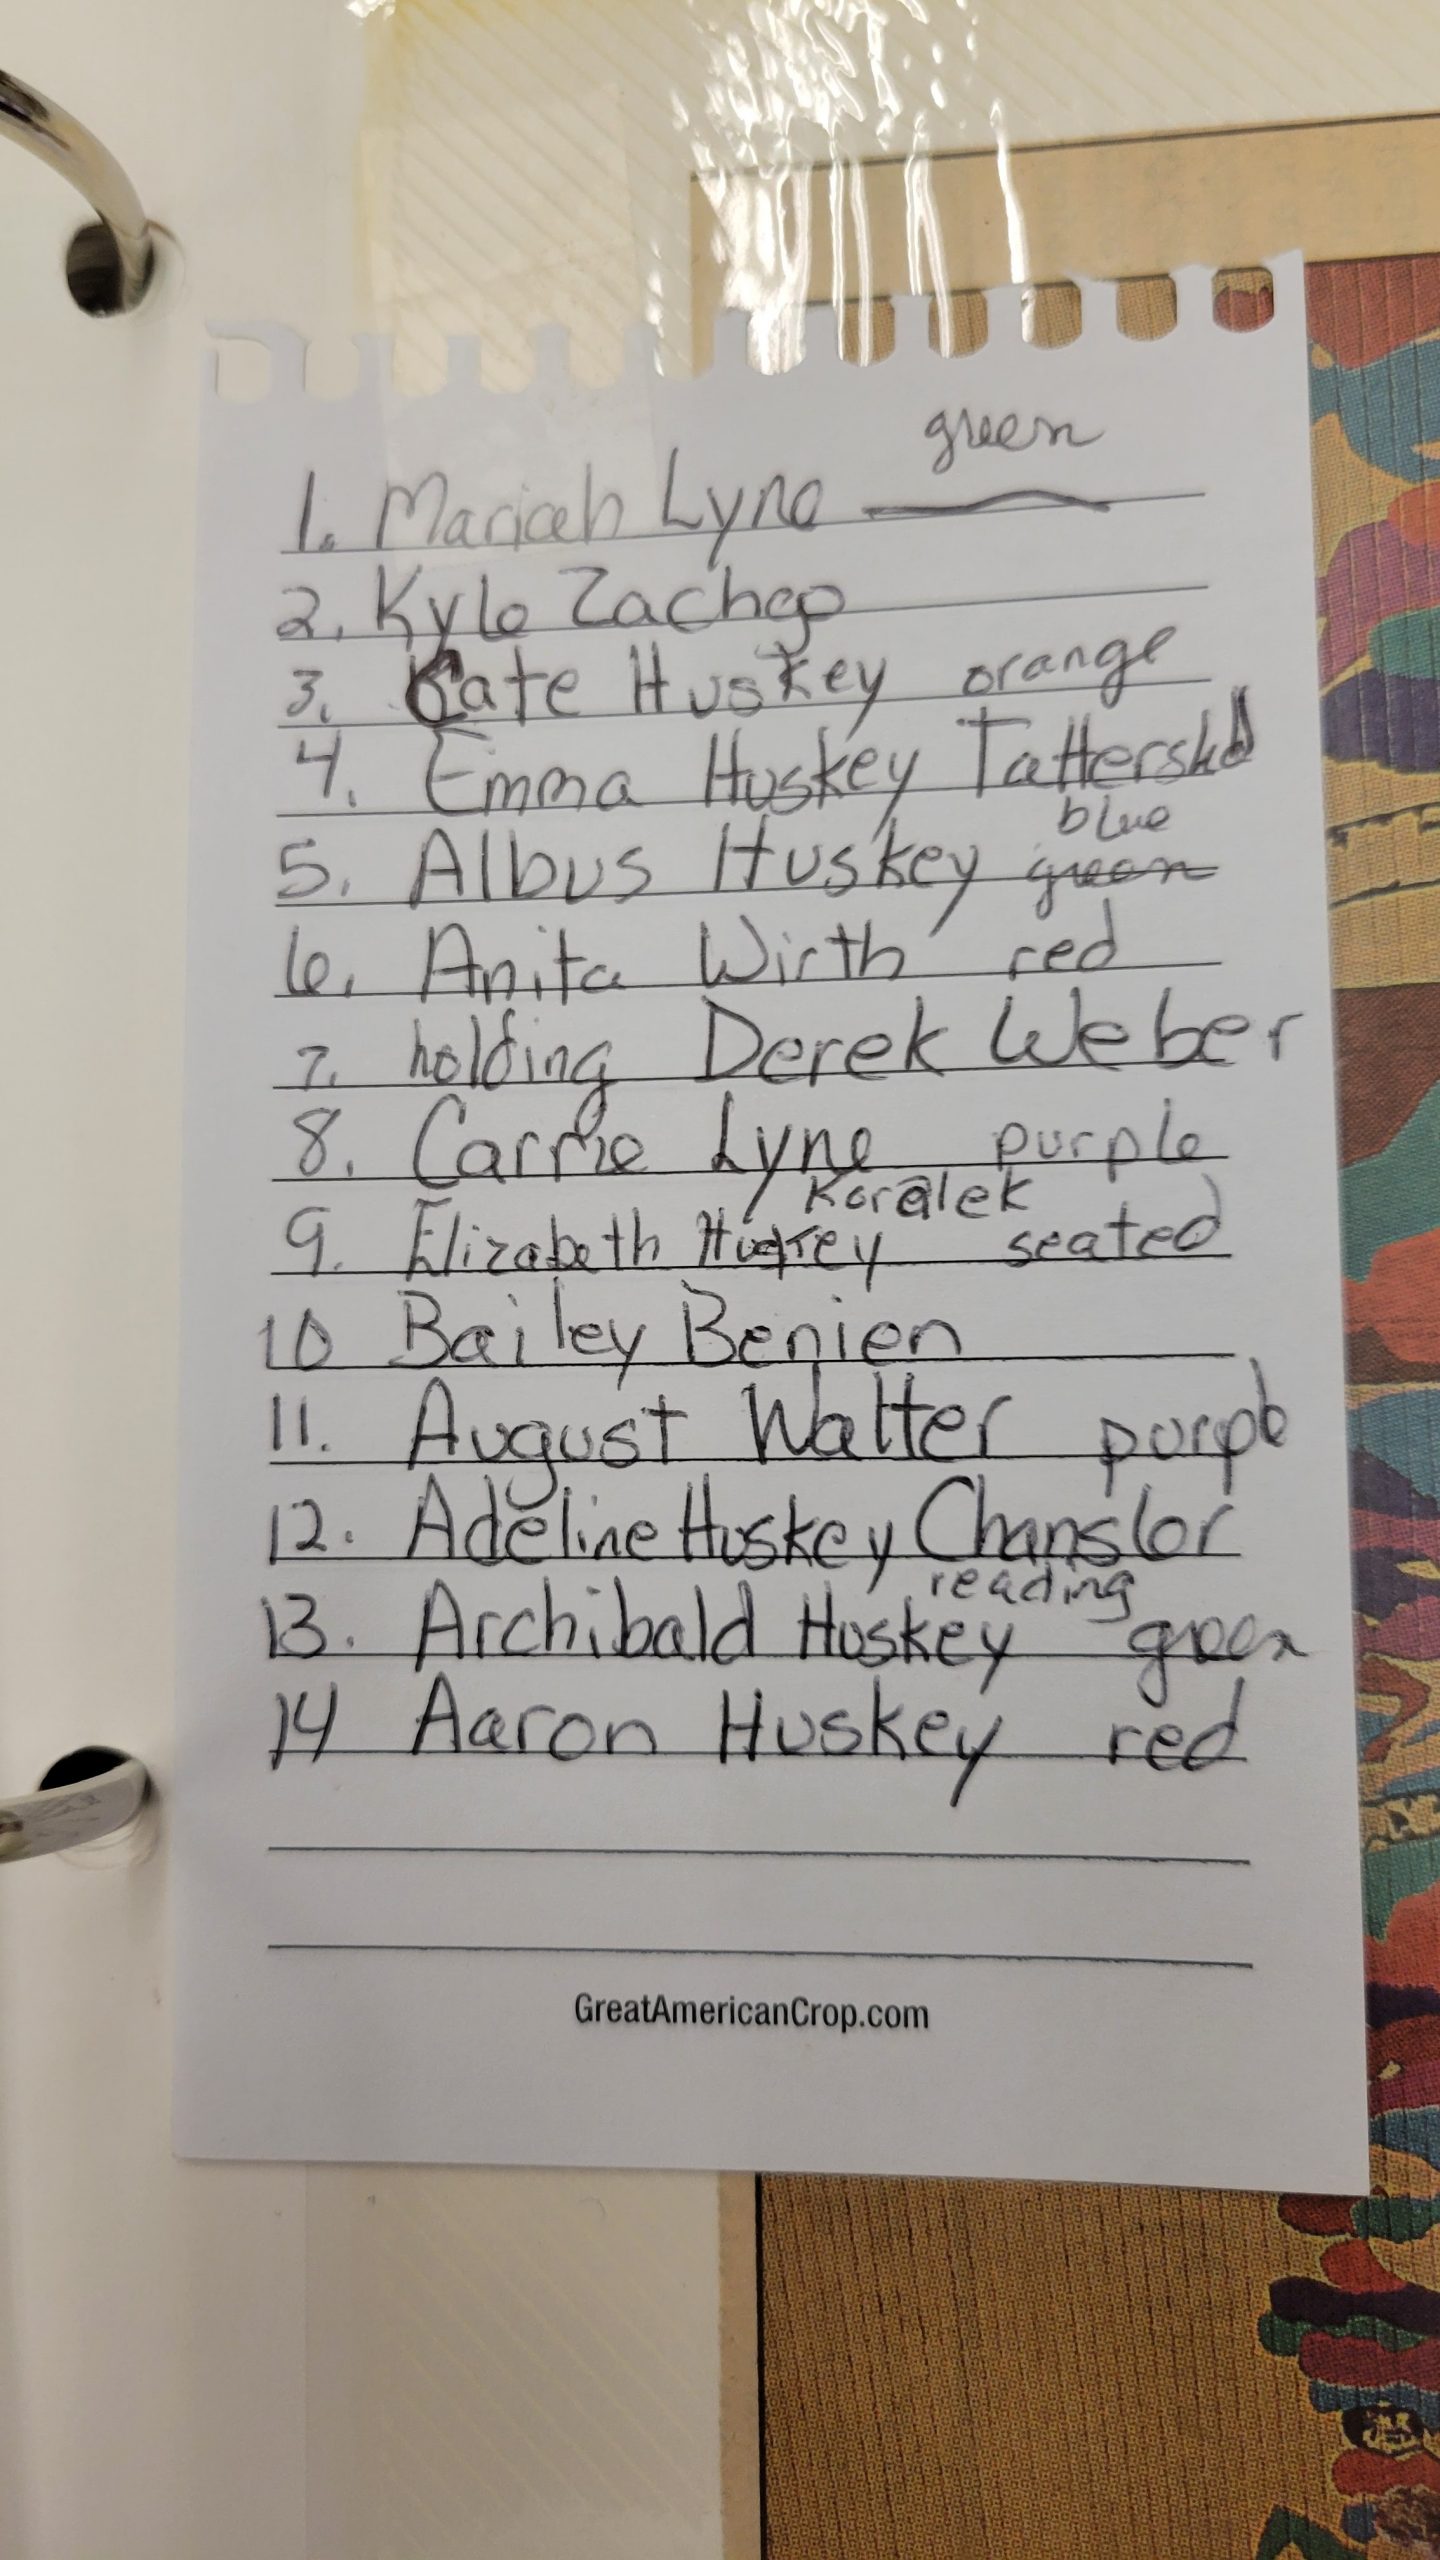 green
1. Mariah Lyne
2. Kyle Zachgo
3. Cate Huskey orange
4. Emma Huskey
blue
5. Albus Huskey green
6. Anita Wirth red
7. holding Derek Weber
8. Carrie Lyne purple
Koralek
9. Elizabeth Huskey seated
10 Bailey Benien
11. August Walter purple
12. Adeline Huskey Chanslor
reading
13. Archibald Huskey green
14 Aaron Huskey red
GreatAmericanCrop.com